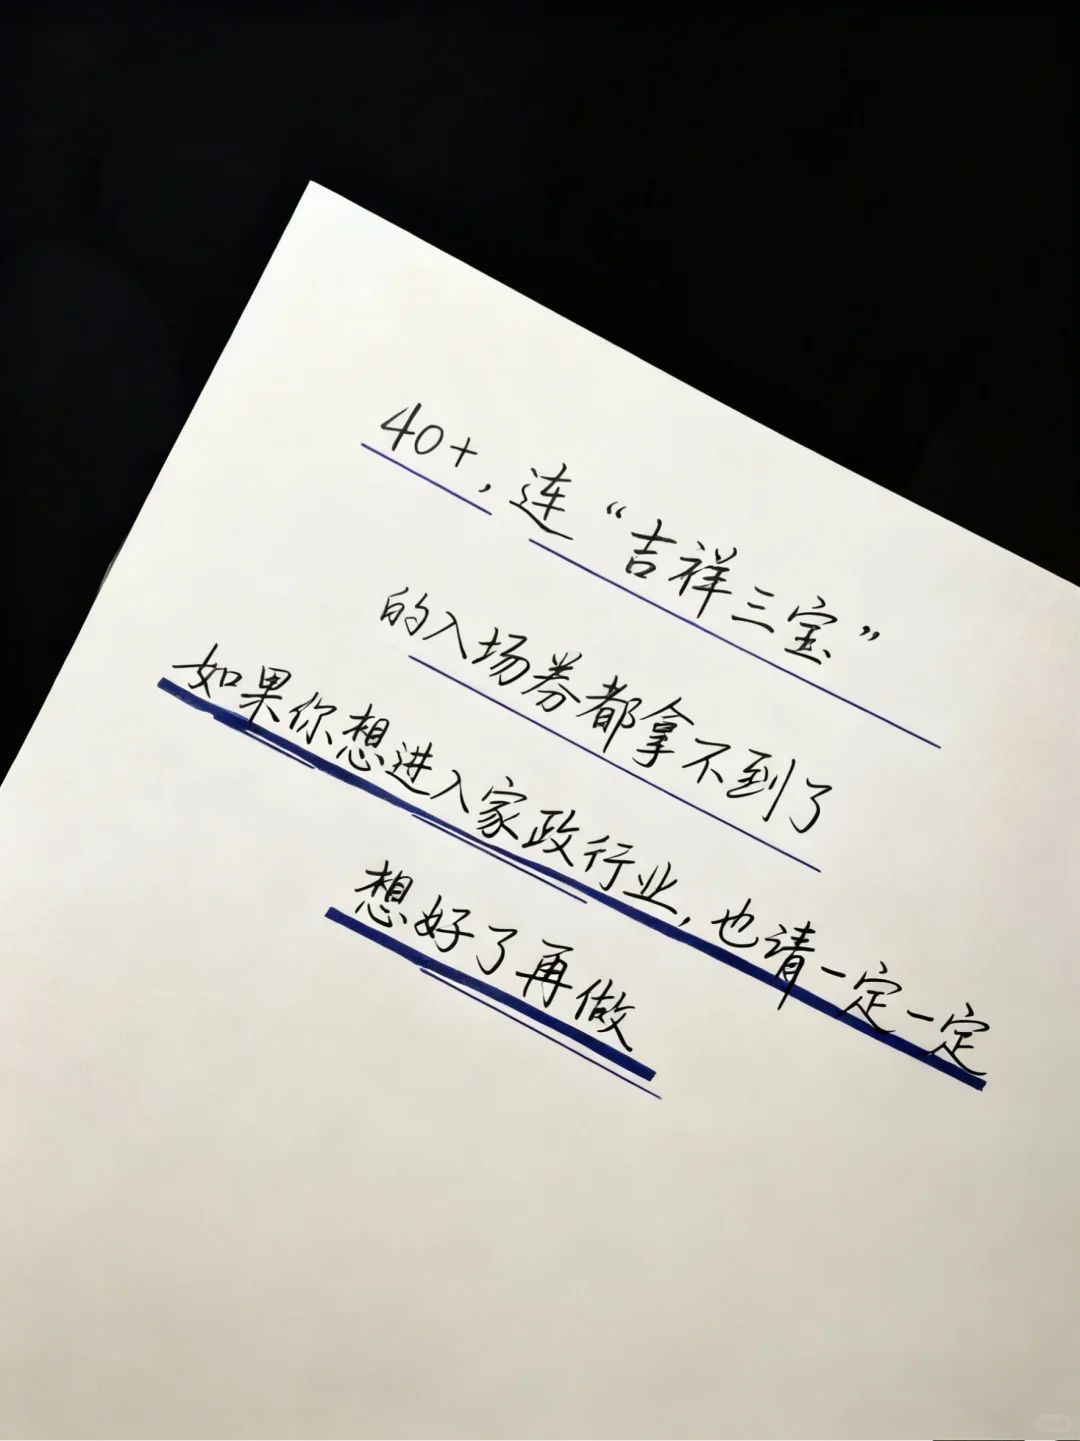 40+，连“吉祥三宝”
的入场券都拿不到了
如果你想进入家政行业，也请一定一定
想好了再做